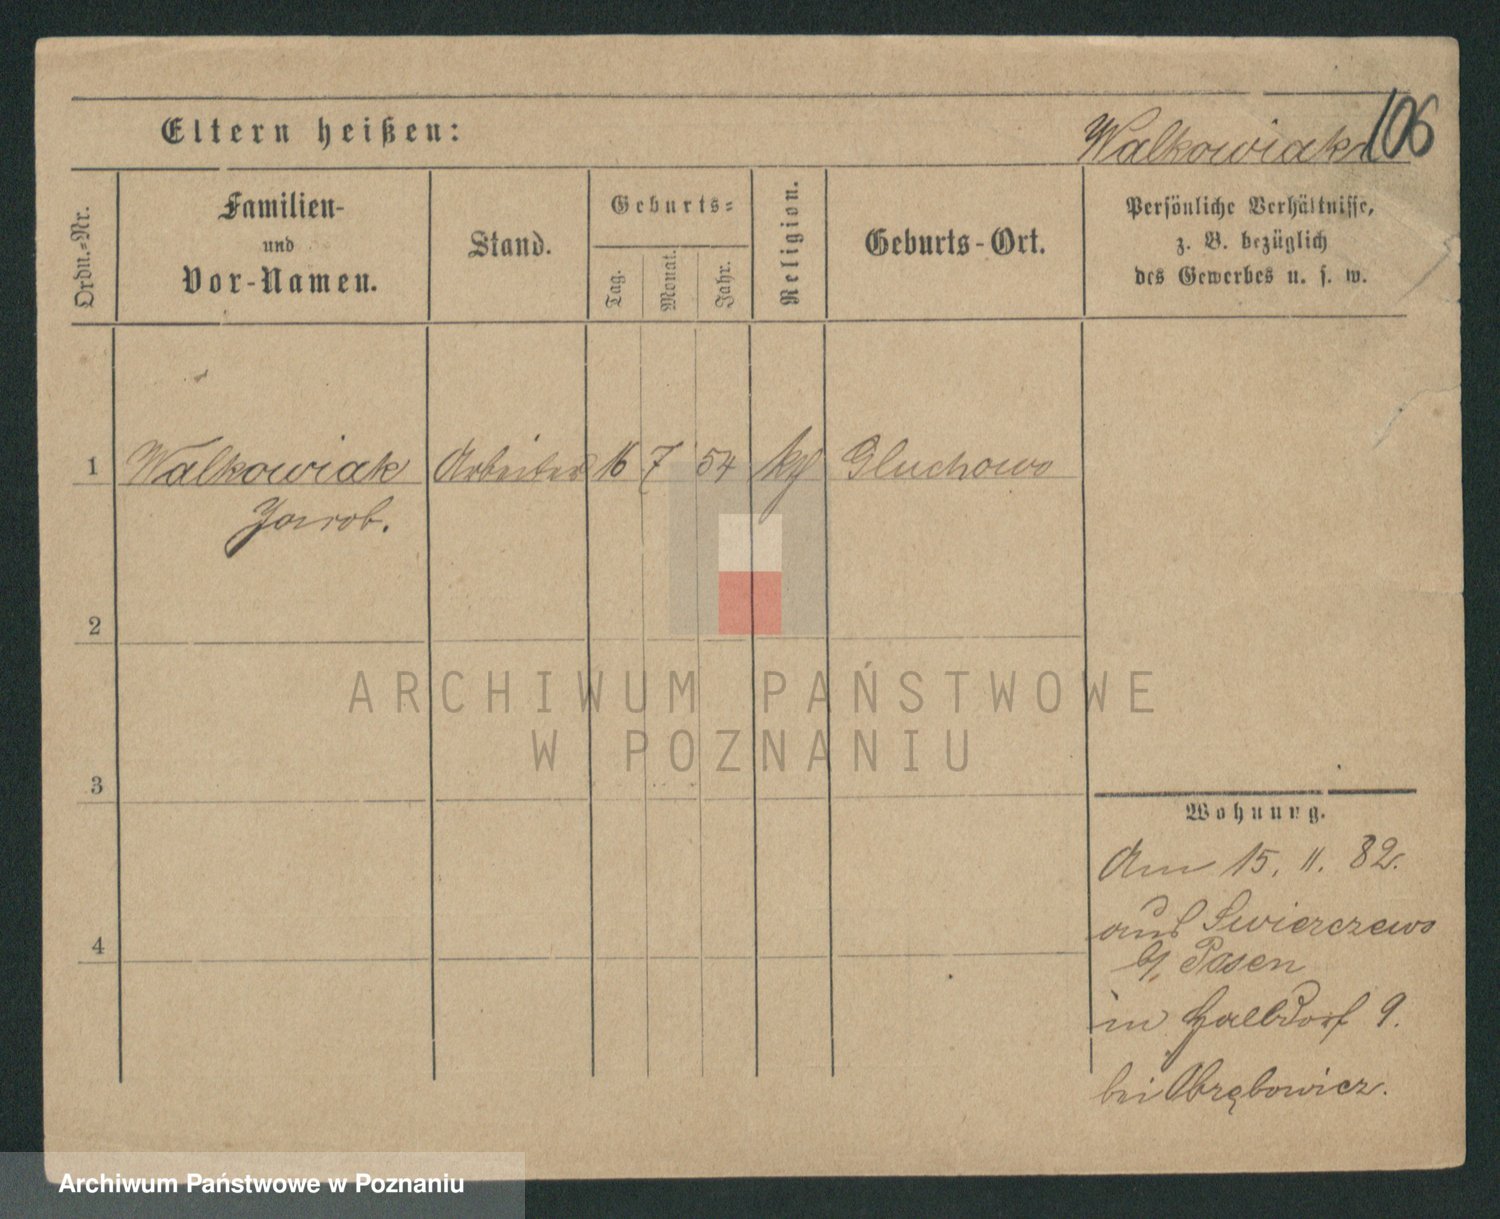 Eltern heißen:
Walkowiak
106
Ordn.=Nr.
Familien-
und
Vor-Namen.
Stand.
Geburts=
Tag.
Monat.
Jahr.
Religion.
Geburts-Ort.
Persönliche Verhältnisse,
z. B. bezüglich
des Gewerbes u. s. w.
1 Walkowiak Arbeiter 16 7 54 Gluchowo
2
3
4
ARCHIWUM PAŃSTWOWE
W POZNANIU
Wohnung.
Am 15. 11. 82.
aus Swierczewo
b/ Posen
in Halbdorf 9.
bei Obrębowicz.
Archiwum Państwowe w Poznaniu